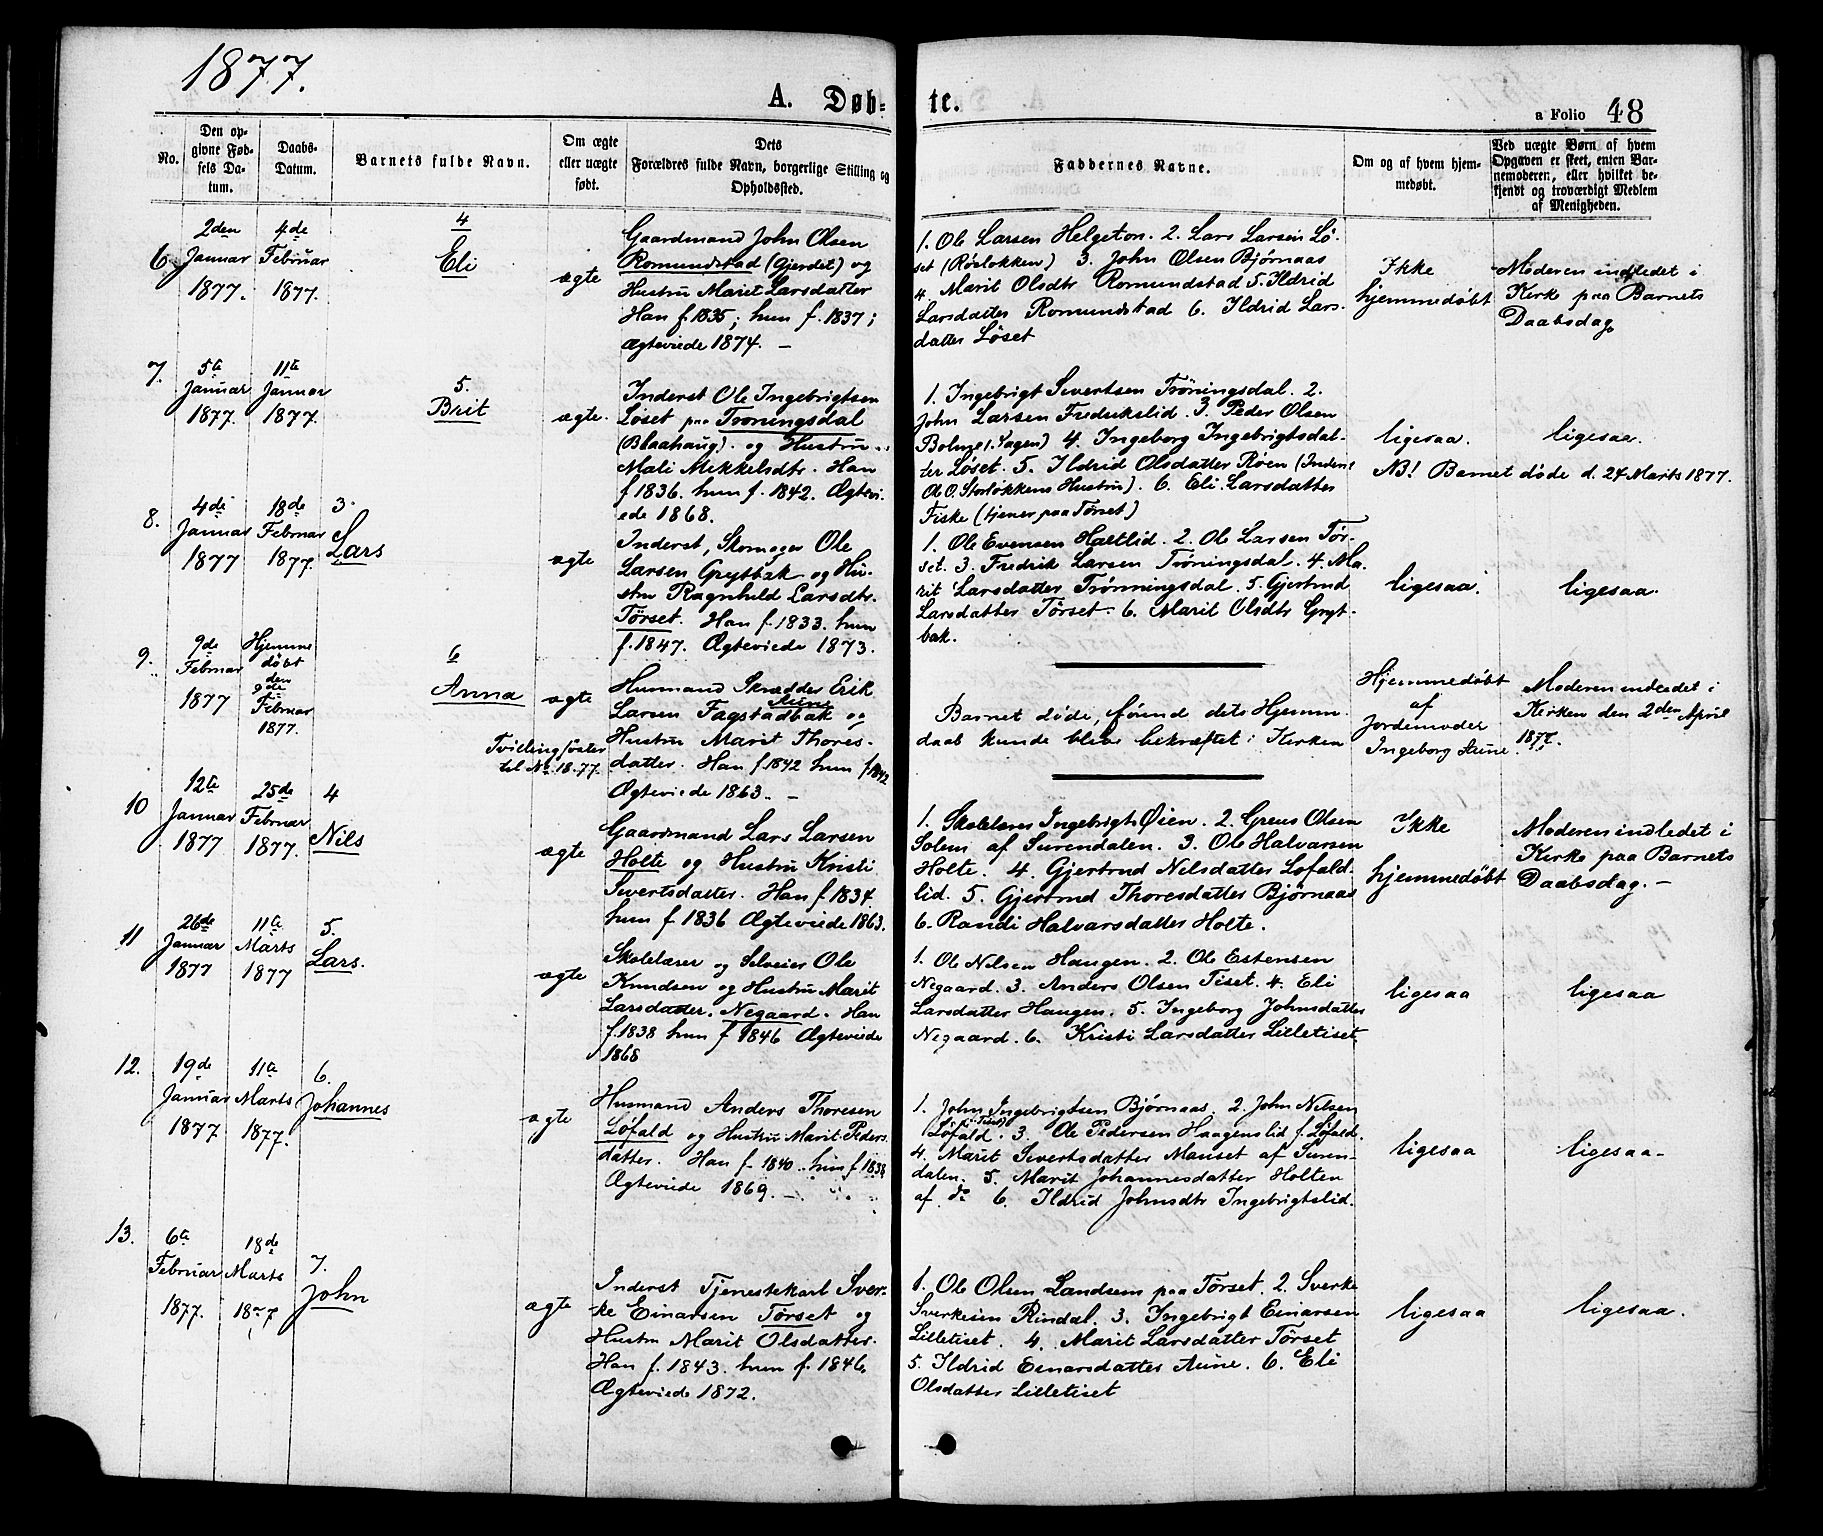 1877.
A. Døb-
te.
a Folio 48
No.
Den op-
givne Fød-
sels Da-
tum.
Daabs-
Datum.
Barnets fulde Navn.
Om ægte
eller uægte
født.
Dets
Forældres fulde Navn, borgerlige Stilling og
Opholdssted.
Faddernes Navne.
Om og af hvem hjem-
medøbt.
Ved uægte Børn af hvem
Opgaven er skeet, enten Bar-
nemoderen, eller hvilket be-
kjendt og troværdigt Medlem
af Menigheden.
6.
2den
Januar
1877.
4de
Februar
1877.
4
Eli
ægte
Gaardmand John Olsen
Romundstad (Gjerdet) og
Hustru Marit Larsdatter
Han f. 1835; hun f. 1837;
Ægteviede 1874. -
1. Ole Larsen Helgeton. 2. Lars Larsen Lø-
set (Røslokken) 3. John Olsen Bjørnaas
4. Marit Olsdtr Romundstad 5. Ildrid
Larsdatter Romundstad 6. Ildrid Lars-
datter Løset
Ikke
hjemmedøbt
Moderen indledet i
Kirke paa Barnets
Daabsdag
7.
5te
Januar
1877.
11te
Januar
1877.
5.
Brit
ægte.
Inderst Ole Ingebrigtsen
Løset paa Trøningsdal
(Blaahaug). og Hustru
Mali Mikkelsdtr. Han
f 1836. hun f. 1842. Ægtevi-
ede 1868.
1. Ingebrigt Sivertsen Trøningsdal. 2.
John Larsen Fredrikslid. 3. Peder Olsen
Bolme (. Sagen) 4. Ingeborg Ingebrigtsdat-
ter Løset. 5. Ildrid Olsdatter Røen (Inderst
Ole O. Storløkkens Hustru). 6. Eli Larsdatter
Fiske (tjener paa Tørset)
ligesaa.
ligesaa.
NB! Barnet døde d. 24 Marts 1877.
8.
4de
Januar
1877
18de
Februar
1877.
3.
Lars
ægte
Inderst, Skomager Ole
Larsen Grytbak og Hu-
stru Ragnhild Larsdtr.
Tørset. Han f. 1833. hun
f. 1847. Ægteviede 1873.
1. Ole Evensen Haltlid. 2. Ole Larsen Tør-
set. 3. Fredrik Larsen Trøningsdal. 4. Ma-
rit Larsdatter Trønningsdal. 5. Gjertrud
Larsdatter Tørset. 6. Marit Olsdtr Gryt-
bak.
ligesaa.
ligesaa.
9.
9de
Februar
1877
Hjemme
døbt
den
9de
Februar
1877.
6
Anna
Tvillingsøster
til No. 18. 77.
ægte
Husmand Skrædder Erik
Aune
Larsen Fagstadbak og
Hustru Marit Thores-
datter. Han f. 1842 hun f. 1842
Ægteviede 1863. -
Barnet døde, førend dets Hjemme
daab kunde blive bekræftet i Kirken
Hjemmedøbt
af
Jordemoder
Ingeborg Aune.
Moderen indledet i
Kirken den 2den April
1877.
10
12te
Januar
1877
25de
Februar
1877.
4
Nils
ægte
Gaardmand Lars Larsen
Holte og Hustru Kristi
Sivertsdatter. Han f. 1834
hun f 1836 Ægteviede 1863.
1. Skolelærer Ingebrigt Øien. 2. Greus Olsen
Solem af Surendalen. 3. Ole Halvarsen
Holte. 4. Gjertrud Nilsdatter Løfald-
lid. 5. Gjertrud Thoresdatter Bjørnaas
6. Randi Halvarsdatter Holte.
Ikke
hjemmedøbt
Moderen indledet i
Kirke paa Barnets
Daabsdag. -
11
26de
Januar
1877
11te
Marts
1877
5.
Lars.
ægte
Skolelærer og Selveier Ole
Knudsen og Hustru Marit
Larsdatter. Negaard. Han
f. 1838 hun f 1846 Ægteviede
1868
1. Ole Nilsen Haugen. 2. Ole Estensen
Negaard. 3. Anders Olsen Tiset. 4. Eli
Larsdatter Haugen. 5. Ingeborg Johnsdatter
Negaard. 6. Kristi Larsdatter Lilletiset
ligesaa
ligesaa
12.
19de
Januar
1877
11te
Marts
1877.
6.
Johannes
ægte
Husmand Anders Thoresen
Løfald og Hustru Marit Peders-
datter. Han f. 1840. hun f 1838
Ægteviede 1869. -
1. John Ingebrigtsen Bjørnaas. 2. John Nilsen
Løfald. 3. Ole Pedersen Haagenslid f. Løfald.
4. Marit Sivertsdatter Mauset af Suren-
dalen. 5. Marit Johannesdatter Holten
af do 6. Ildrid Johnsdtr Ingebrigtslid.
ligesaa
ligesaa-
13.
6te
Februar
1877.
18de
Marts
1877
7.
John
ægte
Inderst Tjenestekarl Sver-
ke Einarsen Tørset og
Hustru Marit Olsdatter.
Han f. 1843. hun f. 1846
Ægteviede 1872.
1. Ole Olsen Landsem paa Tørset. 2. Sverke
Sverkesen Rindal. 3. Ingebrigt Einarsen
Lilletiset. 4. Marit Larsdatter Tørset
5. Ildrid Einarsdatter Aune. 6. Eli
Olsdatter Lilletiset
ligesaa
ligesaa.